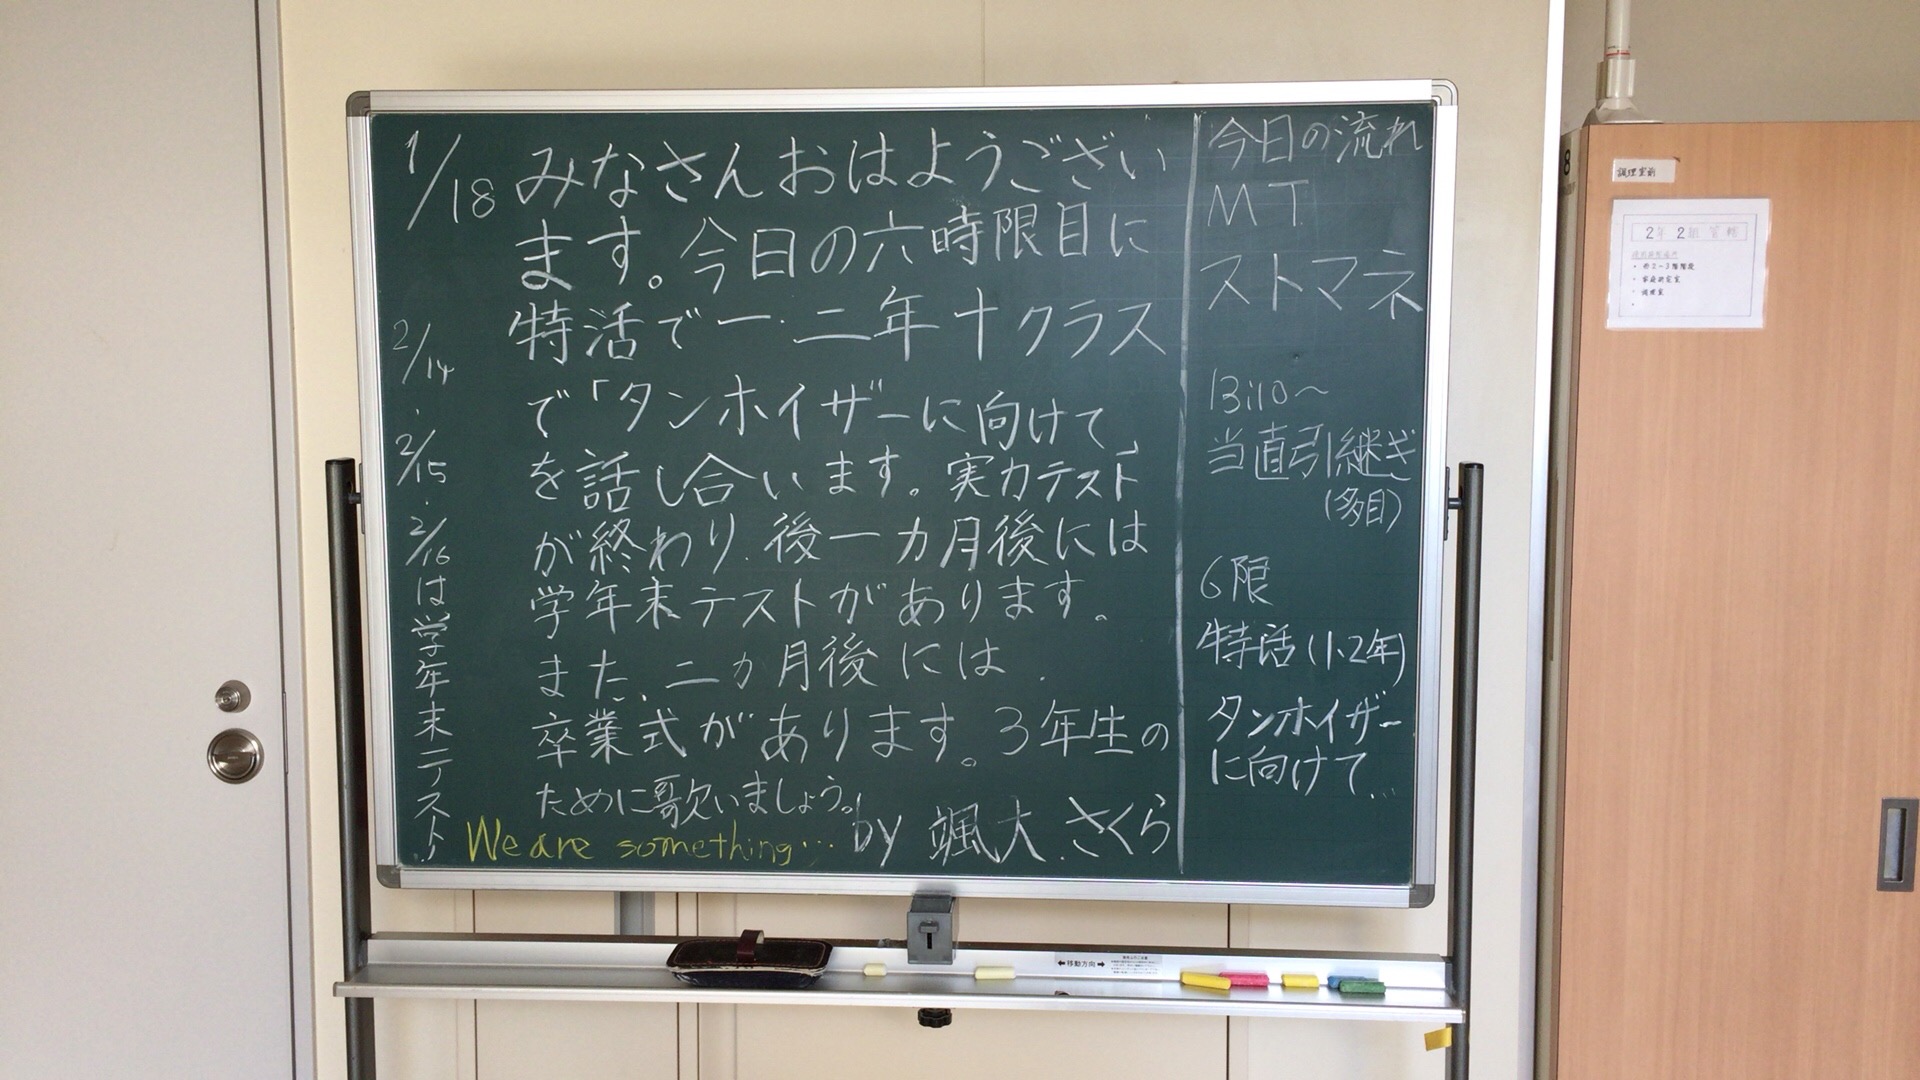 1/18
みなさんおはようござい
ます。今日の六時限目に
特活で一・二年十クラス
で「タンホイザーに向けて」
を話し合います。実力テスト
が終わり、後一カ月後には
学年末テストがあります。
また、二カ月後には、
卒業式があります。3年生の
ために歌いましょう。
by 颯大 さくら
We are something...
2/14
・
2/15
・
2/16
は学年末テスト
今日の流れ
MT
ストマネ
13:10〜
当直引継ぎ
(多目)
6限
特活(1、2年)
タンホイザー
に向けて...
8
調理室前
2年 2組
・ 西2-3階階段
・ 家庭研究室
・ 調理室
・
←移動方向→